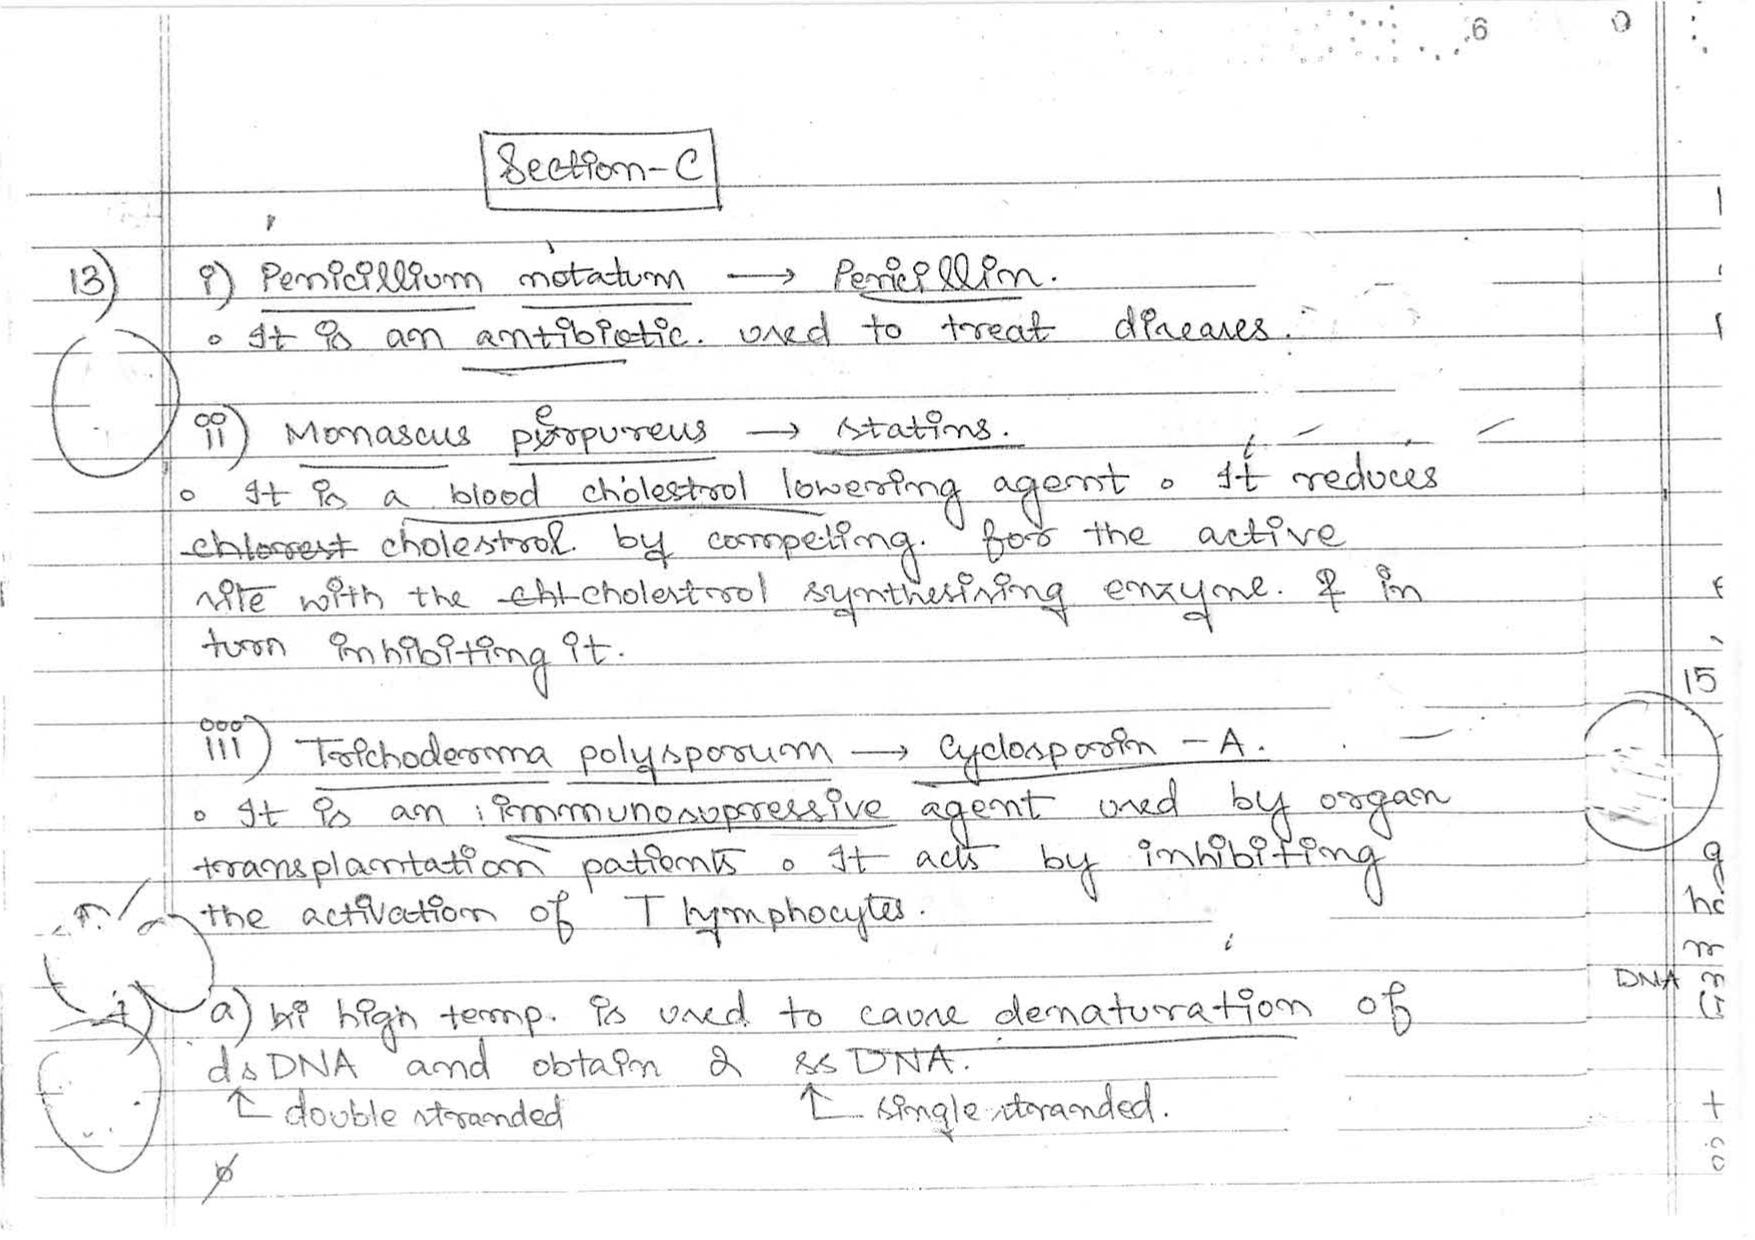 6 0
Section-C
13) i) Penicillium notatum → Penicillin.
∘ It is an antibiotic. used to treat diseases.
ii) Monascus perpureus → statins.
∘ It is a blood cholestrol lowering agent ∘ It reduces
cholestrol by competing. for the active
site with the cholestrol synthesising enzyme. & in
turn inhibiting it.
15
iii) Trichoderma polysporum → Cyclosporin - A.
∘ It is an immunosupressive agent used by organ
transplantation patients ∘ It acts by inhibiting
the activation of T lymphocytes.
DNA
a) high temp. is used to cause denaturation of
dsDNA and obtain 2 ssDNA.
↑ double stranded ↑ single stranded.